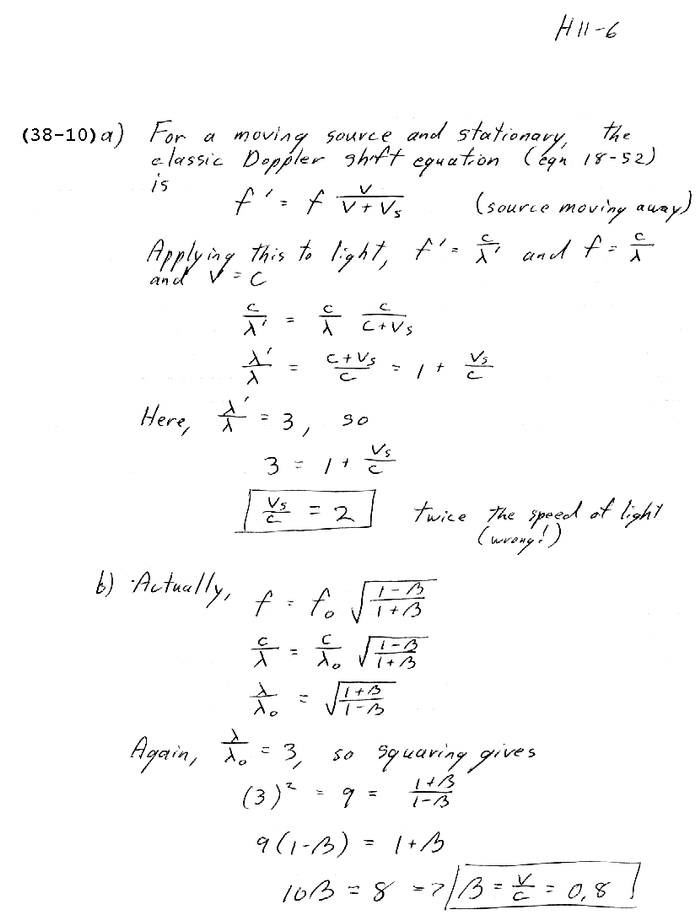 H11-6
(38-10) a) For a moving source and stationary, the
classic Doppler shift equation (eqn 18-52)
is
f' = f V/(V + Vs) (source moving away)
Applying this to light, f' = c/λ' and f = c/λ
and V = C
c/λ' = c/λ c/(c+Vs)
λ'/λ = (c+Vs)/c = 1 + Vs/c
Here, λ'/λ = 3, so
3 = 1 + Vs/c
Vs/c = 2 twice the speed of light
(wrong!)
b) Actually, f = f₀ √((1-β)/(1+β))
c/λ = c/λ₀ √((1-β)/(1+β))
λ/λ₀ = √((1+β)/(1-β))
Again, λ/λ₀ = 3, so squaring gives
(3)² = 9 = (1+β)/(1-β)
9(1-β) = 1+β
10β = 8 => β = V/c = 0.8